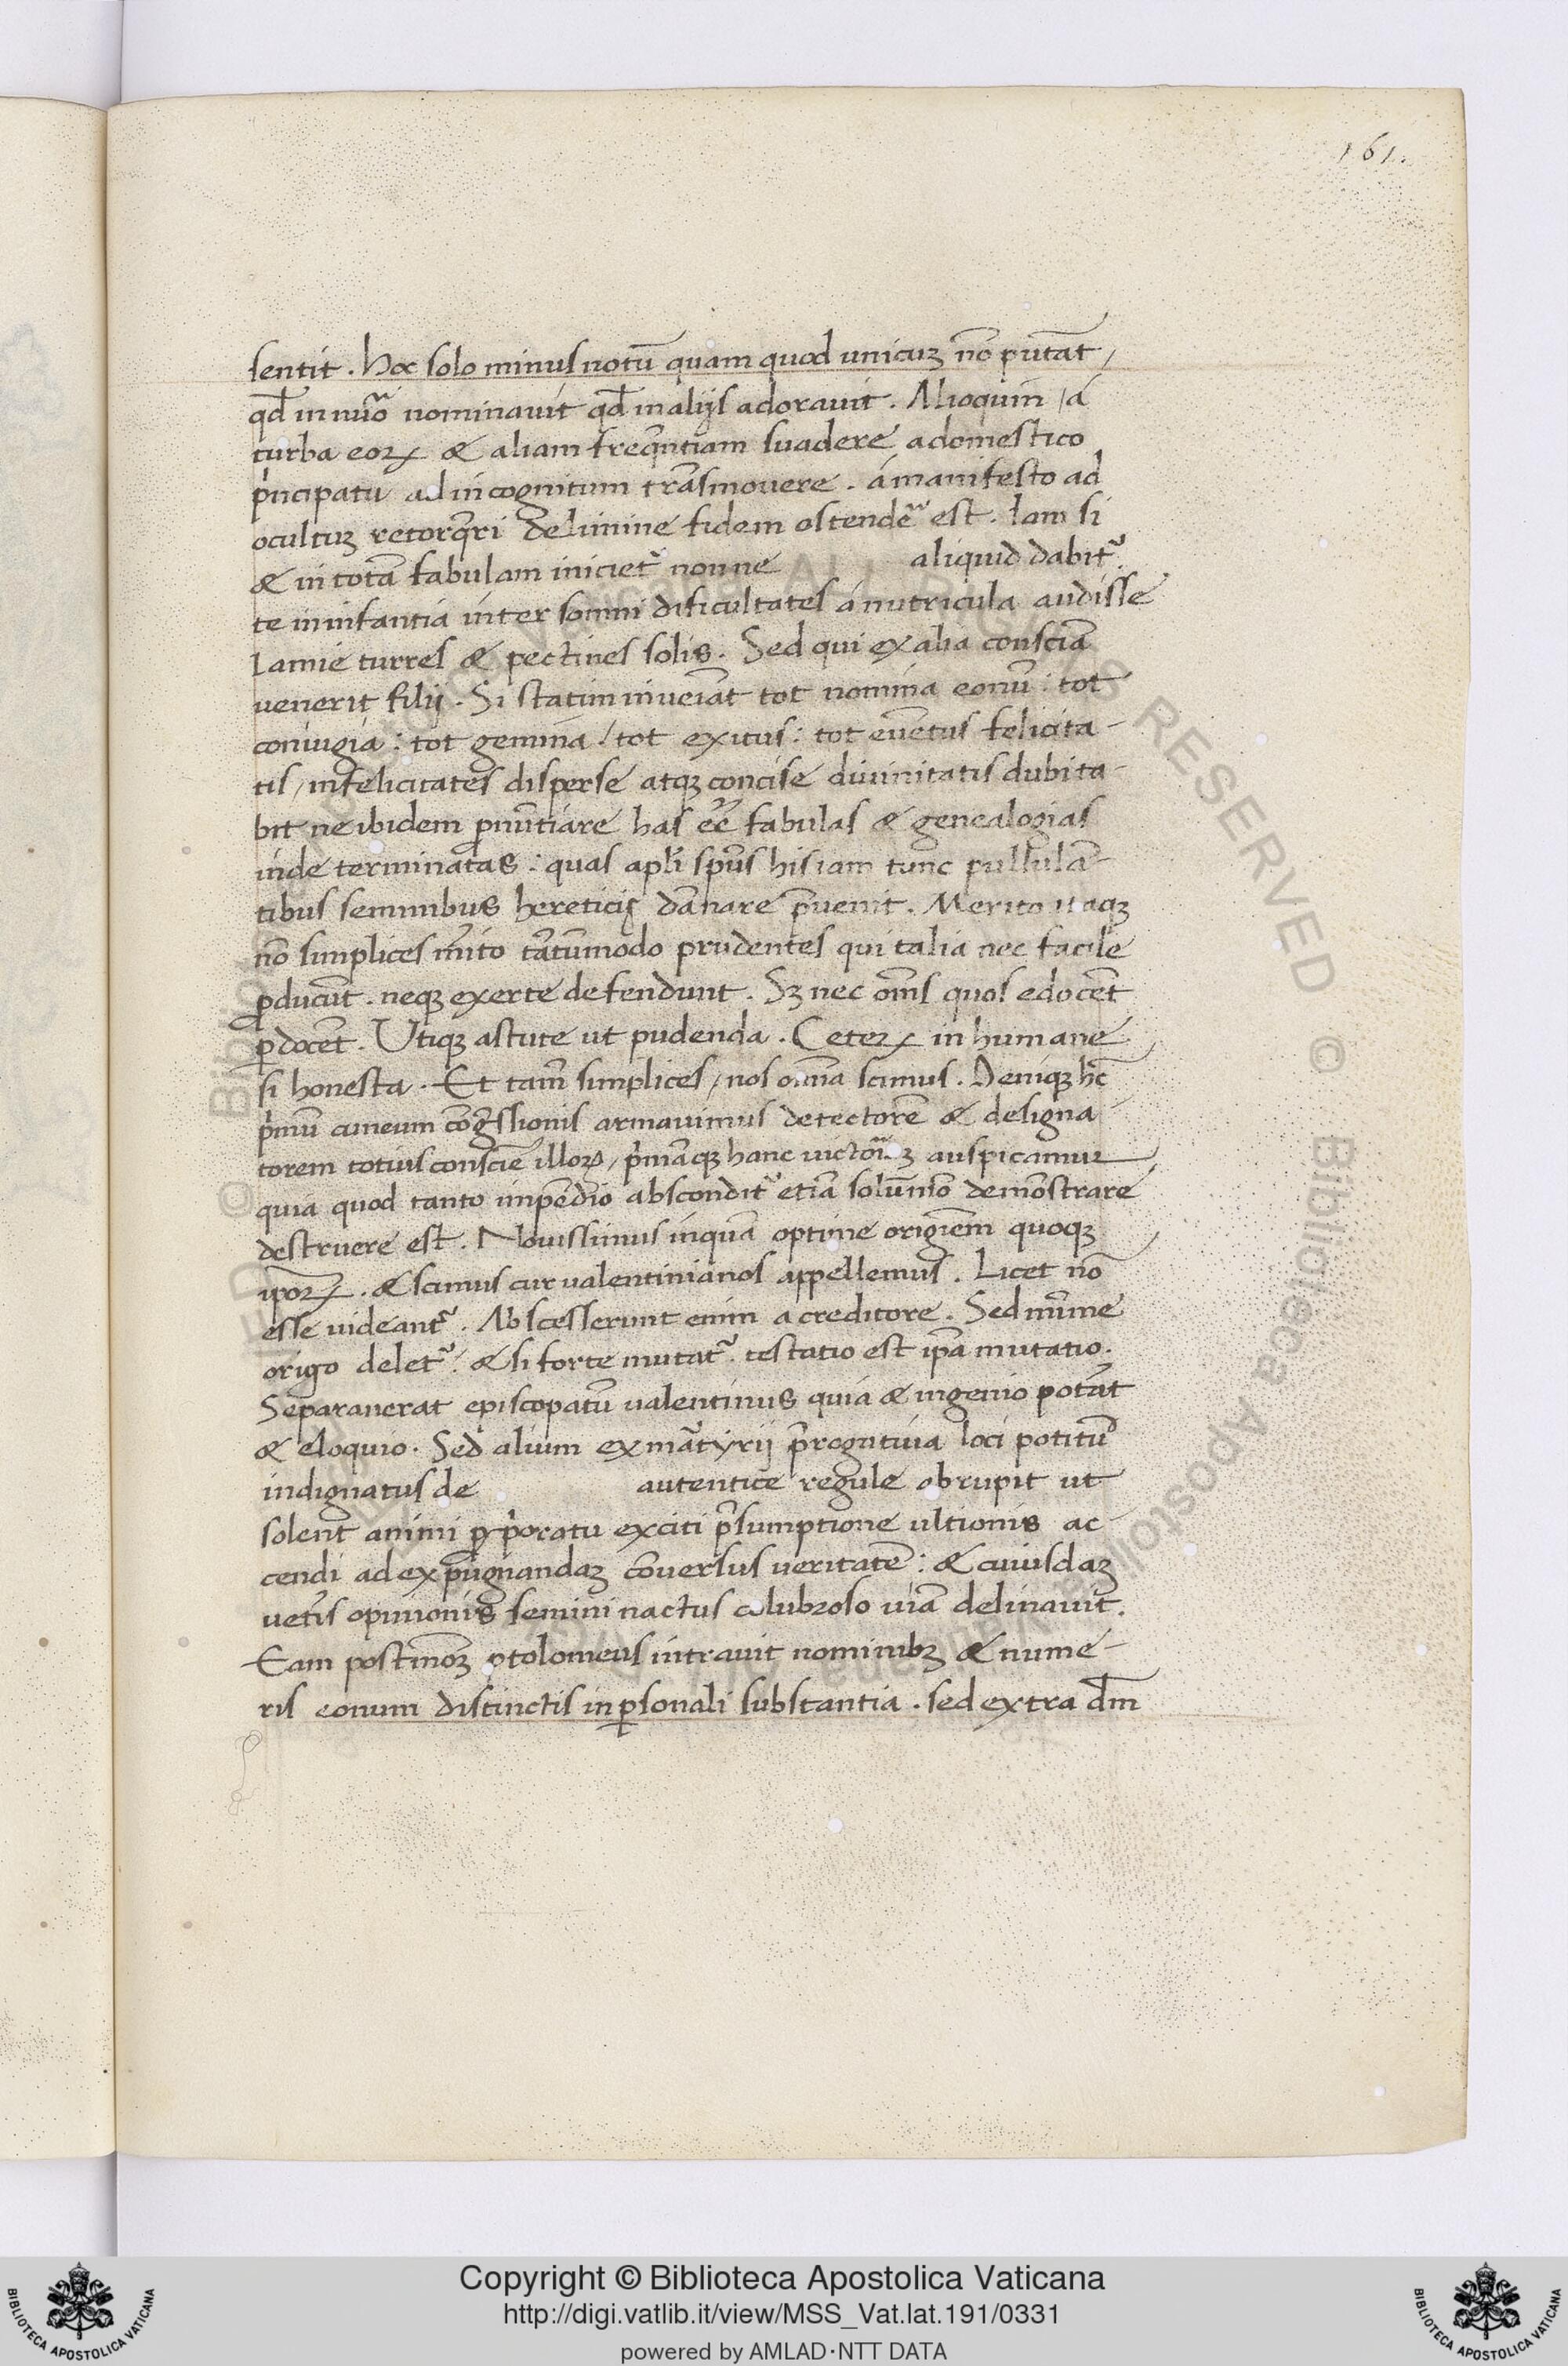 161.
sentit. Hoc solo minus notū quam quod unicuȝ nō putāt,
qđ in nūo nominavit qđ in alijs adoravit. Alioquin / á
turba eoꝝ & aliam freqntiam suadere a domestico
p̍ncipatu ad incognitum trāsmovere. á manifesto ad
ocultuȝ retorqri de limine fidem ostende est. Iam si
& in totā fabulam iniciet᷑ nonne aliquid dabit᷑
te in infantia inter somni dificultates á nutricula audisse
lamie turres & pectines solis. Sed qui ex alia consciā
venerit filij. Si statim inveiāt tot nomina eonū: tot
coniugia: tot gemina / tot exitus: tot evētus felicita-
tis / infelicitates disperse atqȝ concise divinitatis dubita-
bit ne ibidem ꝓnūtiare has eē fabulas & genealogias
inde terminatas: quas apłi spūs his iam tunc pullulā-
tibus seminibus hereticis dānare p̄venit. Merito itaqȝ
nō simplices mito tātūmodo prudentes qui talia nec facile
ꝓducūt. neqȝ exerte defendunt. Sȝ nec om̄s quos edocēt
ꝑdocēt. Utiqȝ astute ut pudenda. Ceteꝝ in humane
si honesta. Et tam̄ simplices / nos omnia scimus. Deniqȝ hc̄
p̍mū cuneum cōgressionis armavimus detectorē & designa
torem totius consciē illoꝝ / p̍māqȝ hanc victoriaȝ auspicamur
quia quod tanto impēdio abscondit᷑ etiā solūmō demōstrare
destruere est. Novissimus inquā optime origiēm quoqȝ
ipoꝝ. & scimus cur valentinianos appellemus. Licet nō
esse videant᷑. Abscesserunt enim a creditore. Sed minime
origo delet᷑. & si forte mutat᷑. testatio est ipā mutatio.
Separaverat episcopatū valentinus quia & ingenio potāt
& eloquio. Sed alium ex mātyrij p̄rogativa loci potitū
indignatus de autentice regule obrupit ut
solent animi ꝓ p̍oratu exciti p̄sumptione ultionis ac-
cendi ad expugnandaȝ cōversus veritatē: & cuiusdaȝ
vetis opinionis semini nactus colubroso viā delinavit.
Eam postmōȝ ptolomeus intravit nominibȝ & nume-
ris eonum distinctis in ꝑsonali substantia. sed extra dm̄
© Biblioteca Apostolica Vaticana ALL RIGHTS RESERVED © Biblioteca Apostolica Vaticana
Copyright © Biblioteca Apostolica Vaticana
http://digi.vatlib.it/view/MSS_Vat.lat.191/0331
powered by AMLAD·NTT DATA
BIBLIOTECA APOSTOLICA VATICANA
BIBLIOTECA APOSTOLICA VATICANA